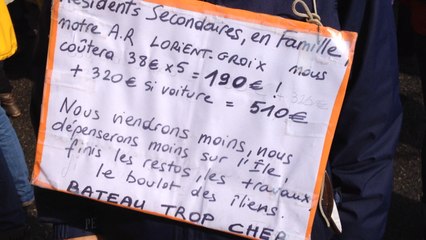 Résidents Secondaires, en Famille,
notre A.R LORIENT-GROIX nous
coûtera 38€ x 5 = 190€ !
+ 320€ si voiture = 510€
Nous viendrons moins, nous
dépenserons moins sur l'Île,
finis les restos, les travaux
le boulot des îliens.
BATEAU TROP CHER